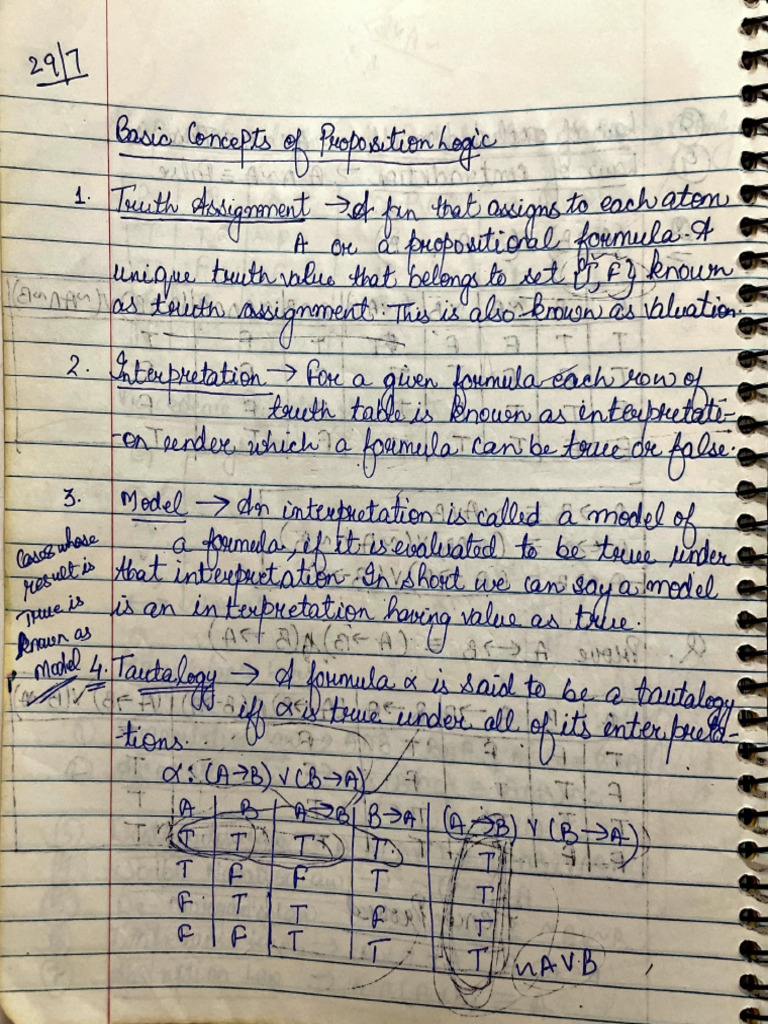 29/7
Basic Concepts of Proposition Logic
1. Truth Assignment → A fxn that assigns to each atom
A or a propositional formula. A
unique truth value that belongs to set {T, F} known
as truth assignment. This is also known as valuation.
2. Interpretation → For a given formula each row of
truth table is known as interpretati-
-on under which a formula can be true or false.
3. Model → An interpretation is called a model of
a formula, if it is evaluated to be true under
that interpretation. In short we can say a model
is an interpretation having value as true.
Cases whose
result is
True is
known as
Model
4. Tautalogy → A formula α is said to be a tautalogy
iff α is true under all of its interpreta-
tions.
α : (A→B) ∨ (B→A)
A B A→B B→A (A→B) ∨ (B→A)
T T T T T
T F F T T
F T T F T
F F T T T
~A∨B